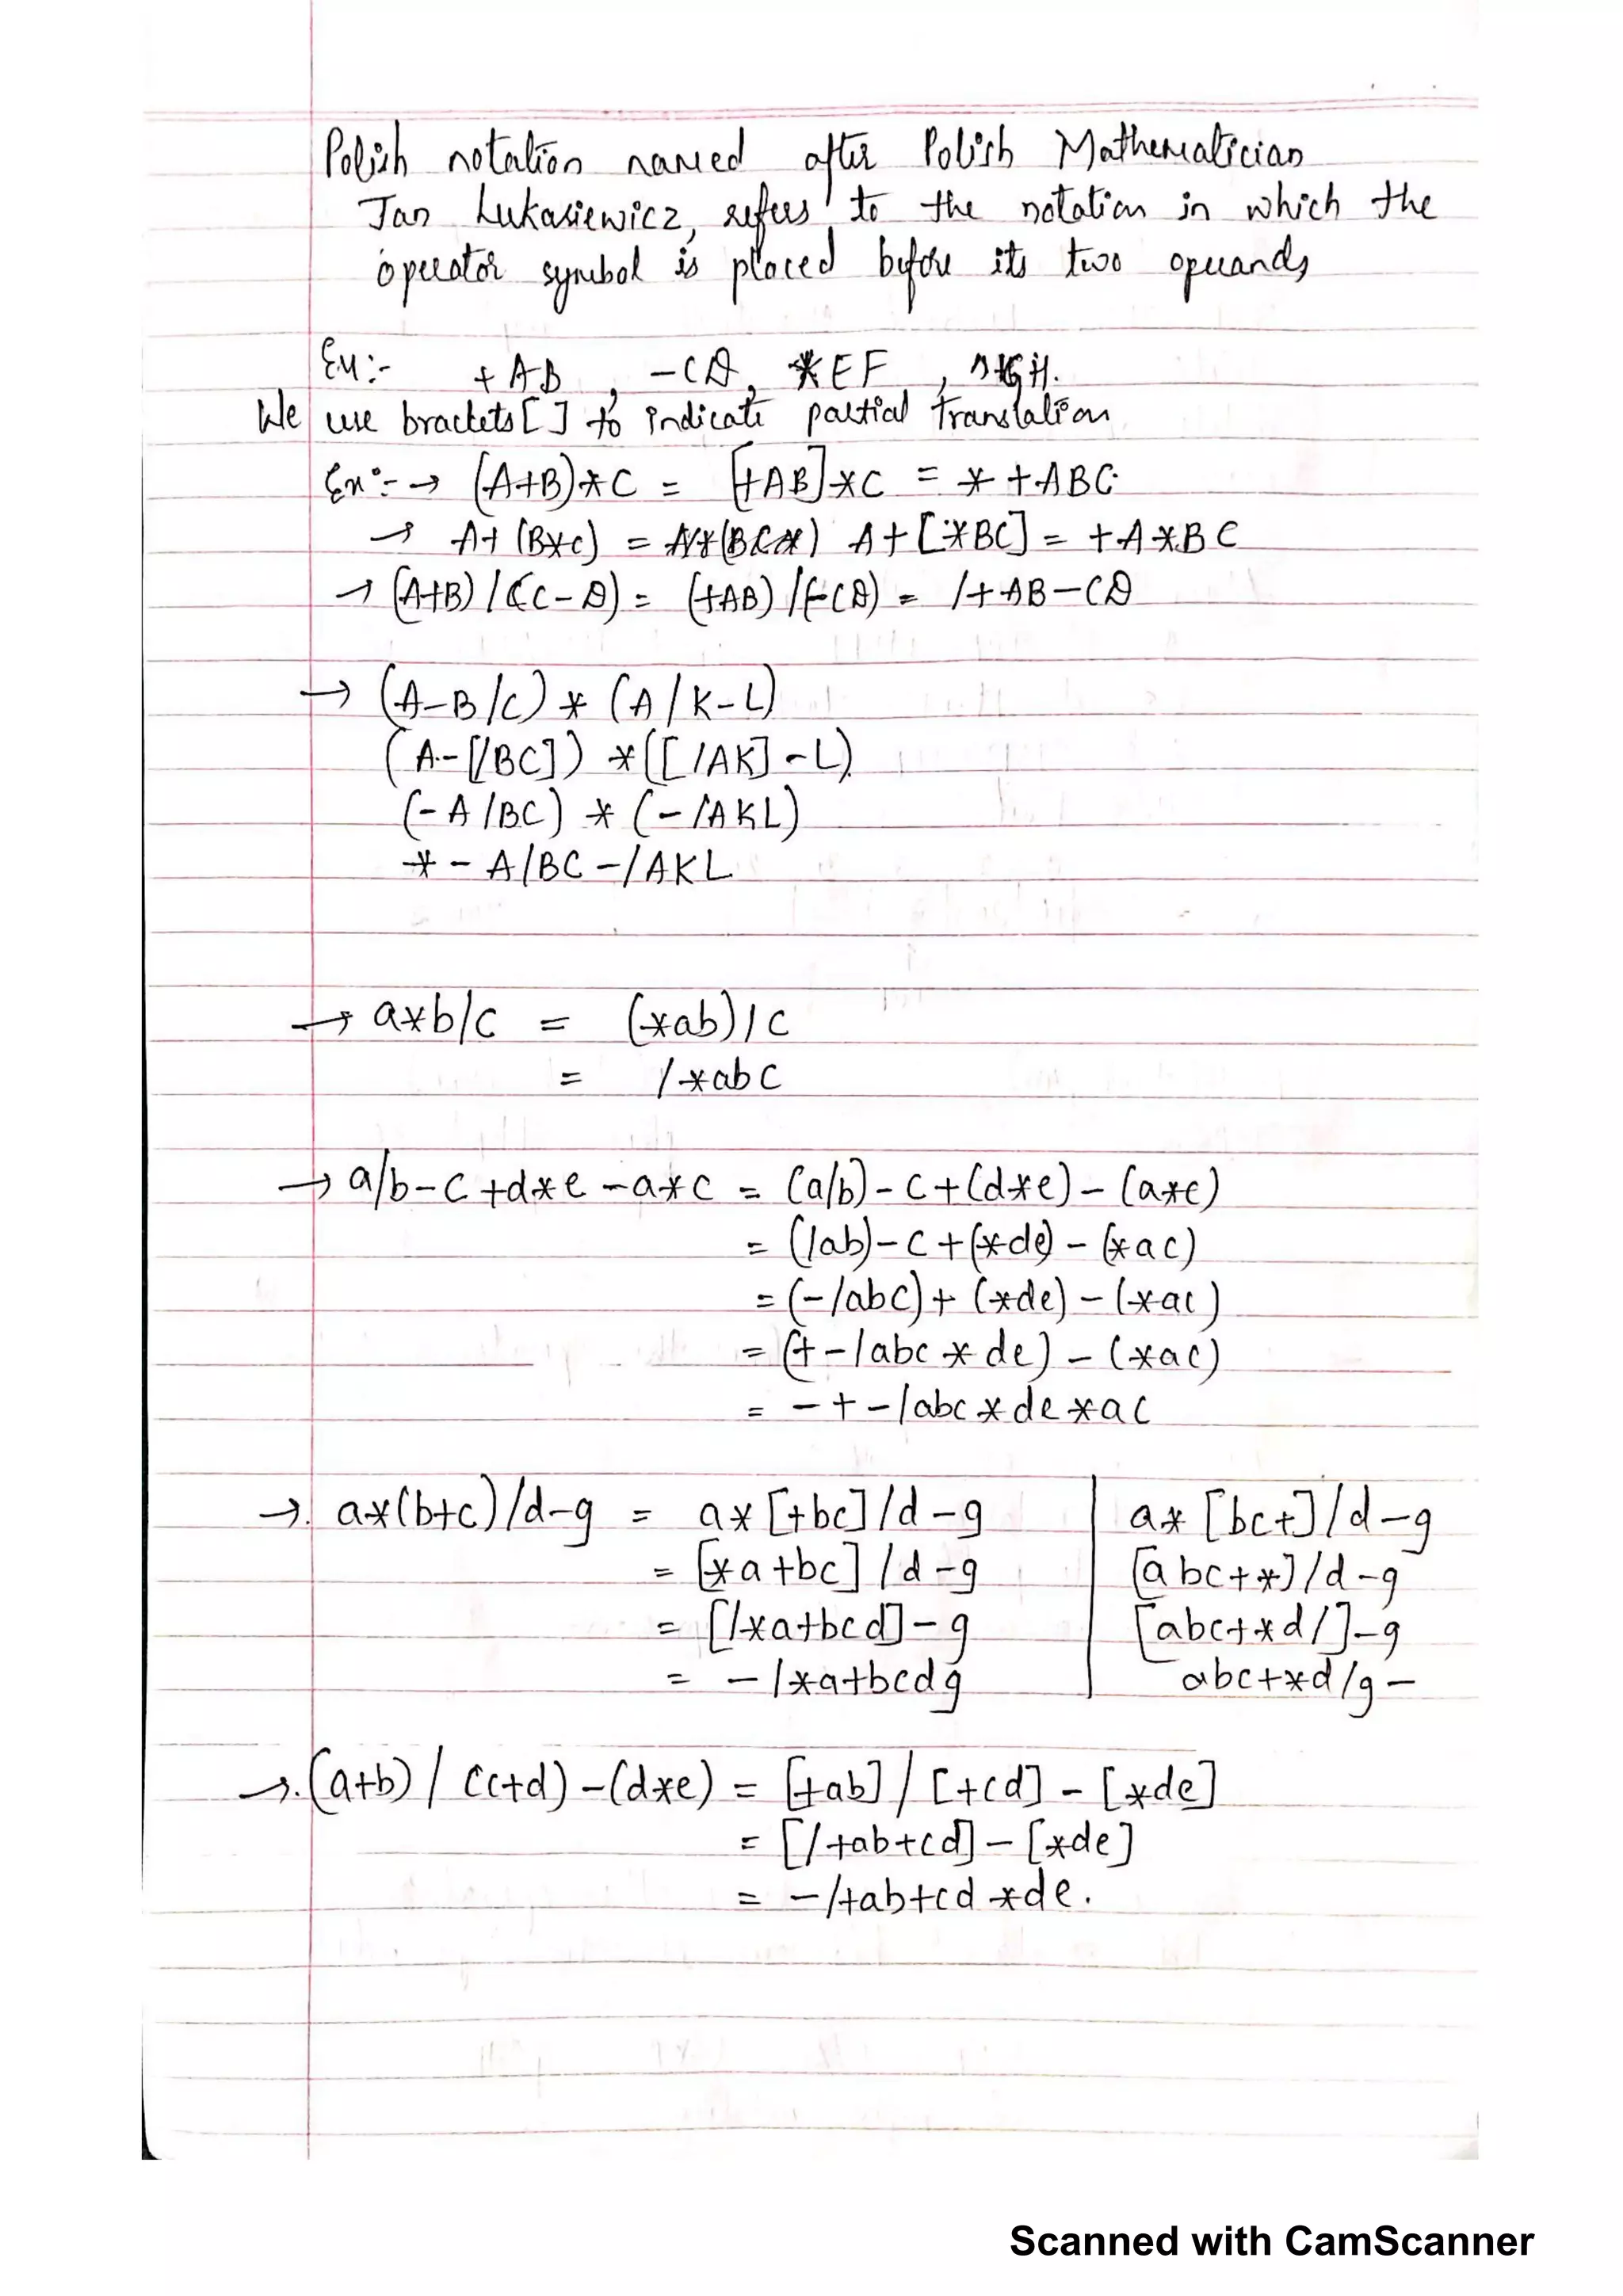 Polish notation named after Polish Mathematician
Jan Lukasiewicz, refers to the notation in which the
operator symbol is placed before its two operands
Ex:- +AB , -CD, *EF , GH.
We use brackets [ ] to indicate partial translation
Ex:- → (A+B)*C = [+AB]*C = *+ABC
→ A+(B*C) = A+[*BC] = +A*BC
→ (A+B)/(C-D) = (+AB)/(-CD) = /+AB-CD
→ (A-B/C)*(A/K-L)
(A-[/BC])*([/AK]-L)
(-A/BC)*(-/AKL)
*-A/BC-/AKL
→ a*b/c = (*ab)/c
= /*abc
→ a/b-c+d*e-a*c = (a/b)-c+(d*e)-(a*c)
= (/ab)-c+(*de)-(*ac)
= (-/abc)+(*de)-(*ac)
= (+-/abc*de)-(*ac)
= -+-/abc*de*ac
→. a*(b+c)/d-g = a*[+bc]/d-g | a*[bc+]/d-g
= [*a+bc]/d-g | [abc+*]/d-g
= [/*a+bcd]-g | [abc+*d/]-g
= -/*a+bcdg | abc+*d/g-
→. (a+b)/(c+d)-(d*e) = [+ab]/[+cd]-[*de]
= [/+ab+cd]-[*de]
= -/+ab+cd*de.
Scanned with CamScanner